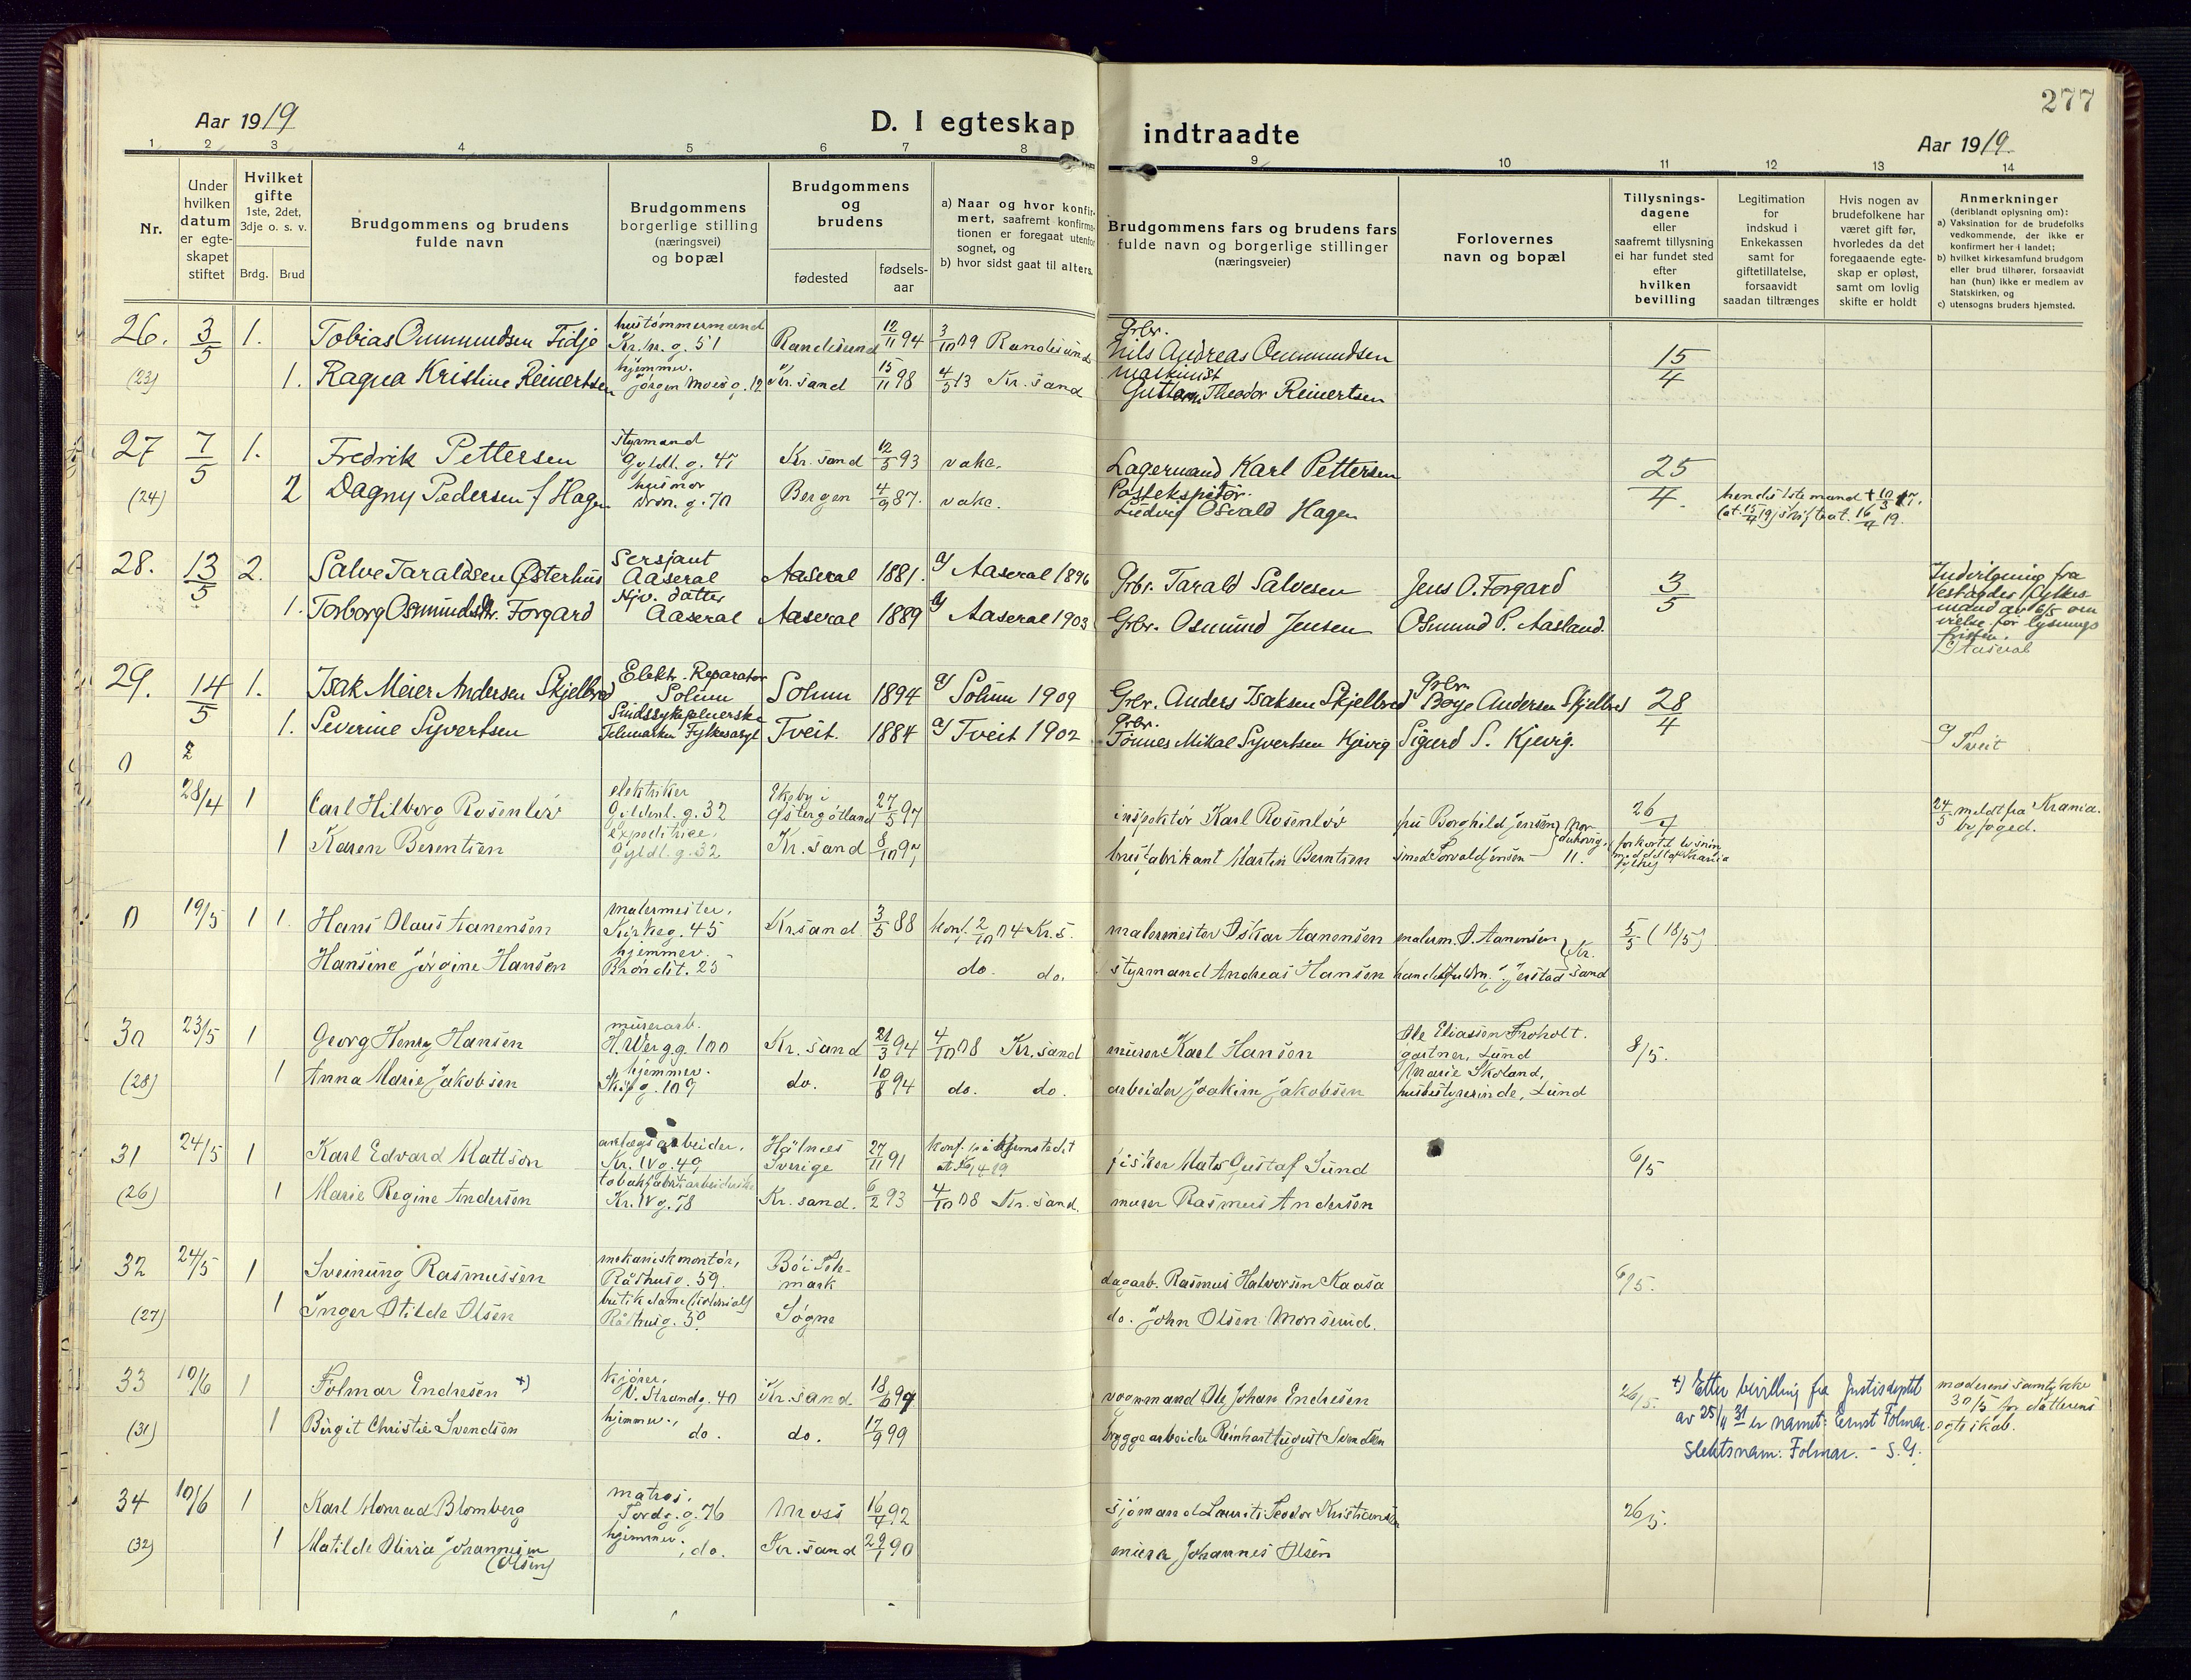 277
Aar 1919
D. I egteskap
indtraadte
Aar 1919.
1 2 3 4 5 6 7 8 9 10 11 12 13 14
Nr.
Under
hvilken
datum
er egte-
skapet
stiftet
Hvilket
gifte
1ste, 2det,
3dje o. s. v.
Brdg. Brud
Brudgommens og brudens
fulde navn
Brudgommens
borgerlige stilling
(næringsvei)
og bopæl
Brudgommens
og
brudens
fødested
fødsels-
aar
a) Naar og hvor konfir-
mert, saafremt konfirma-
tionen er foregaat utenfor
sognet, og
b) hvor sidst gaat til alters.
Brudgommens fars og brudens fars
fulde navn og borgerlige stillinger
(næringsveier)
Forlovernes
navn og bopæl
Tillysnings-
dagene
eller
saafremt tillysning
ei har fundet sted
efter
hvilken
bevilling
Legitimation
for
indskud i
Enkekassen
samt for
giftetillatelse,
forsaavidt
saadan tiltrænges
Hvis nogen av
brudefolkene har
været gift før,
hvorledes da det
foregaaende egte-
skap er opløst,
samt om lovlig
skifte er holdt
Anmerkninger
(deriblandt oplysning om):
a) Vaksination for de brudefolks
vedkommende, der ikke er
konfirmert her i landet;
b) hvilket kirkesamfund brudgom
eller brud tilhører, forsaavidt
han (hun) ikke er medlem av
Statskirken, og
c) utensogns bruders hjemsted.
26. 3/5 1. Tobias Ommundsen Fidje hustømmermand Kr. IV. g. 51 Randesund 12/11 94 3/10 09 Randesund Grbr. Nils Andreas Ommundsen 15/4
(23) 1. Ragna Kristine Reinertsen hjemmev. Jørgen Moes g. 12 Kr. sand 15/11 98 4/5 13 Kr. sand maskinist Gustav Theodor Reinertsen
27 7/5 1. Fredrik Pettersen styrmand Gyldl. g. 47 Kr. sand 12/5 93 vake. Lagermand Karl Pettersen 25/4
(24) 2 Dagny Pedersen f Hagen husmor Dron. g. 70 Bergen 4/9 87. vake. Postekspeditør. Ludvig Osvald Hagen hendes 1ste mand † 10/3 17.
28. 13/5 2. Salve Taraldsen Østerhus Sersjant Aaseral Aaseral 1881. a) Aaseral 1896 Grbr. Tarald Salvesen Jens O. Forgard 3/5
1. Torborg Osmundsdtr. Forgard Aaseral Aaseral 1889 a) Aaseral 1903 Grbr. Osmund Jensen Osmund P. Aasland.
c) Aaseral
29. 14/5 1. Isak Meier Andersen Skjelbred Elektr. Reparatør Solum Solum 1894 a) Solum 1909 Grbr. Anders Isaksen Skjelbred Grbr. Børge Andersen Skjelbred 28/4
1. Severine Syvertsen Sindssykepleierske Telemarken Fylkesasyl Tveit. 1884 a) Tveit 1902 Grbr. Tønnes Mikal Syvertsen Kjevig Sigurd S. Kjevig. c) Tveit
0
28/4 1 Carl Hilborg Rosenlöv elektriker Gyldenl. g. 32 Ekeby i Østergötland 27/5 97 inspektör Karl Rosenlöv fru Borghild Jensen 26/4 24/5 meldt fra Krania. byfoged.
1 Karen Berentsen expeditrice, Gyldl. g. 32 Kr. sand 8/10 97 brusfabrikant Martin Berntsen
0 19/5 1 1. Hans Olaus Aanensen malermester, Kirkeg. 45 Kr. sand 3/5 88 konf. 2/10 04 Kr. S. malermester Oskar Aanensen malerm. O. Aanensen 5/5 (18/5)
Hansine Jørgine Hansen hjemmev. Brøndst. 25 do. do. styrmand Andreas Hansen
30 23/5 1 Georg Henry Hansen murerarb. H. Werg g. 100 Kr. sand 21/3 94 4/10 08 Kr. sand murer Karl Hansen Ole Eliassen Froholt. gartner, Lund 8/5.
(28) 1 Anna Marie Jakobsen hjemmev. Skipg. 109 do. 10/8 94 do. do. arbeider Joakim Jakobsen Marie Skoland, husbestyrerinde, Lund
31 24/5 1 Karl Edvard Mattson anlægsarbeider, Kr. IV g. 49 Sverige 27/11 91 konf. på hjemstedet fisker Mats Gustaf Sund 6/5
(26) 1 Marie Regine Andersen tobakfabrikarbeiderske Kr. IV g. 78 Kr. sand. 6/2 93 4/10 08 Kr. sand. murer Rasmus Andersen
32 24/5 1 Sveinung Rasmussen mekanisk montør, Rådhusg. 59. Bö i Telemark dagarb. Rasmus Halvorsen Kaasa 6/5.
(27) 1 Inger Otilde Olsen butikdame Rådhusg. 50 Søgne do. John Olsen
33 10/6 1 Folmar Endresen +) kjører, V. Strandg. 40 Kr. sand. 18/6 97 vognmand Ole Johan Endresen 26/5. +) Etter bevilling fra Justisdeptet moderens samtykke
av 25/4 31 er navnet: Ernst Folmar. 30/5 for datterens
(31) 1 Birgit Christie Svendsen hjemmev., do. do. 17/9 99 bryggearbeider Reinhart August Svendsen slektsnavn: Folmar. - S. G. egteskab.
34 10/6 1 Karl Monrad Blomberg matros, Tordg. g. 76 Moss 16/4 92 sjømand Laurits Teodor Kristiansen 26/5.
(32) 1 Matilde Olivia Johannessen (Olsen) hjemmev., do. Kr. sand 29/1 90 murer Johannes Olsen